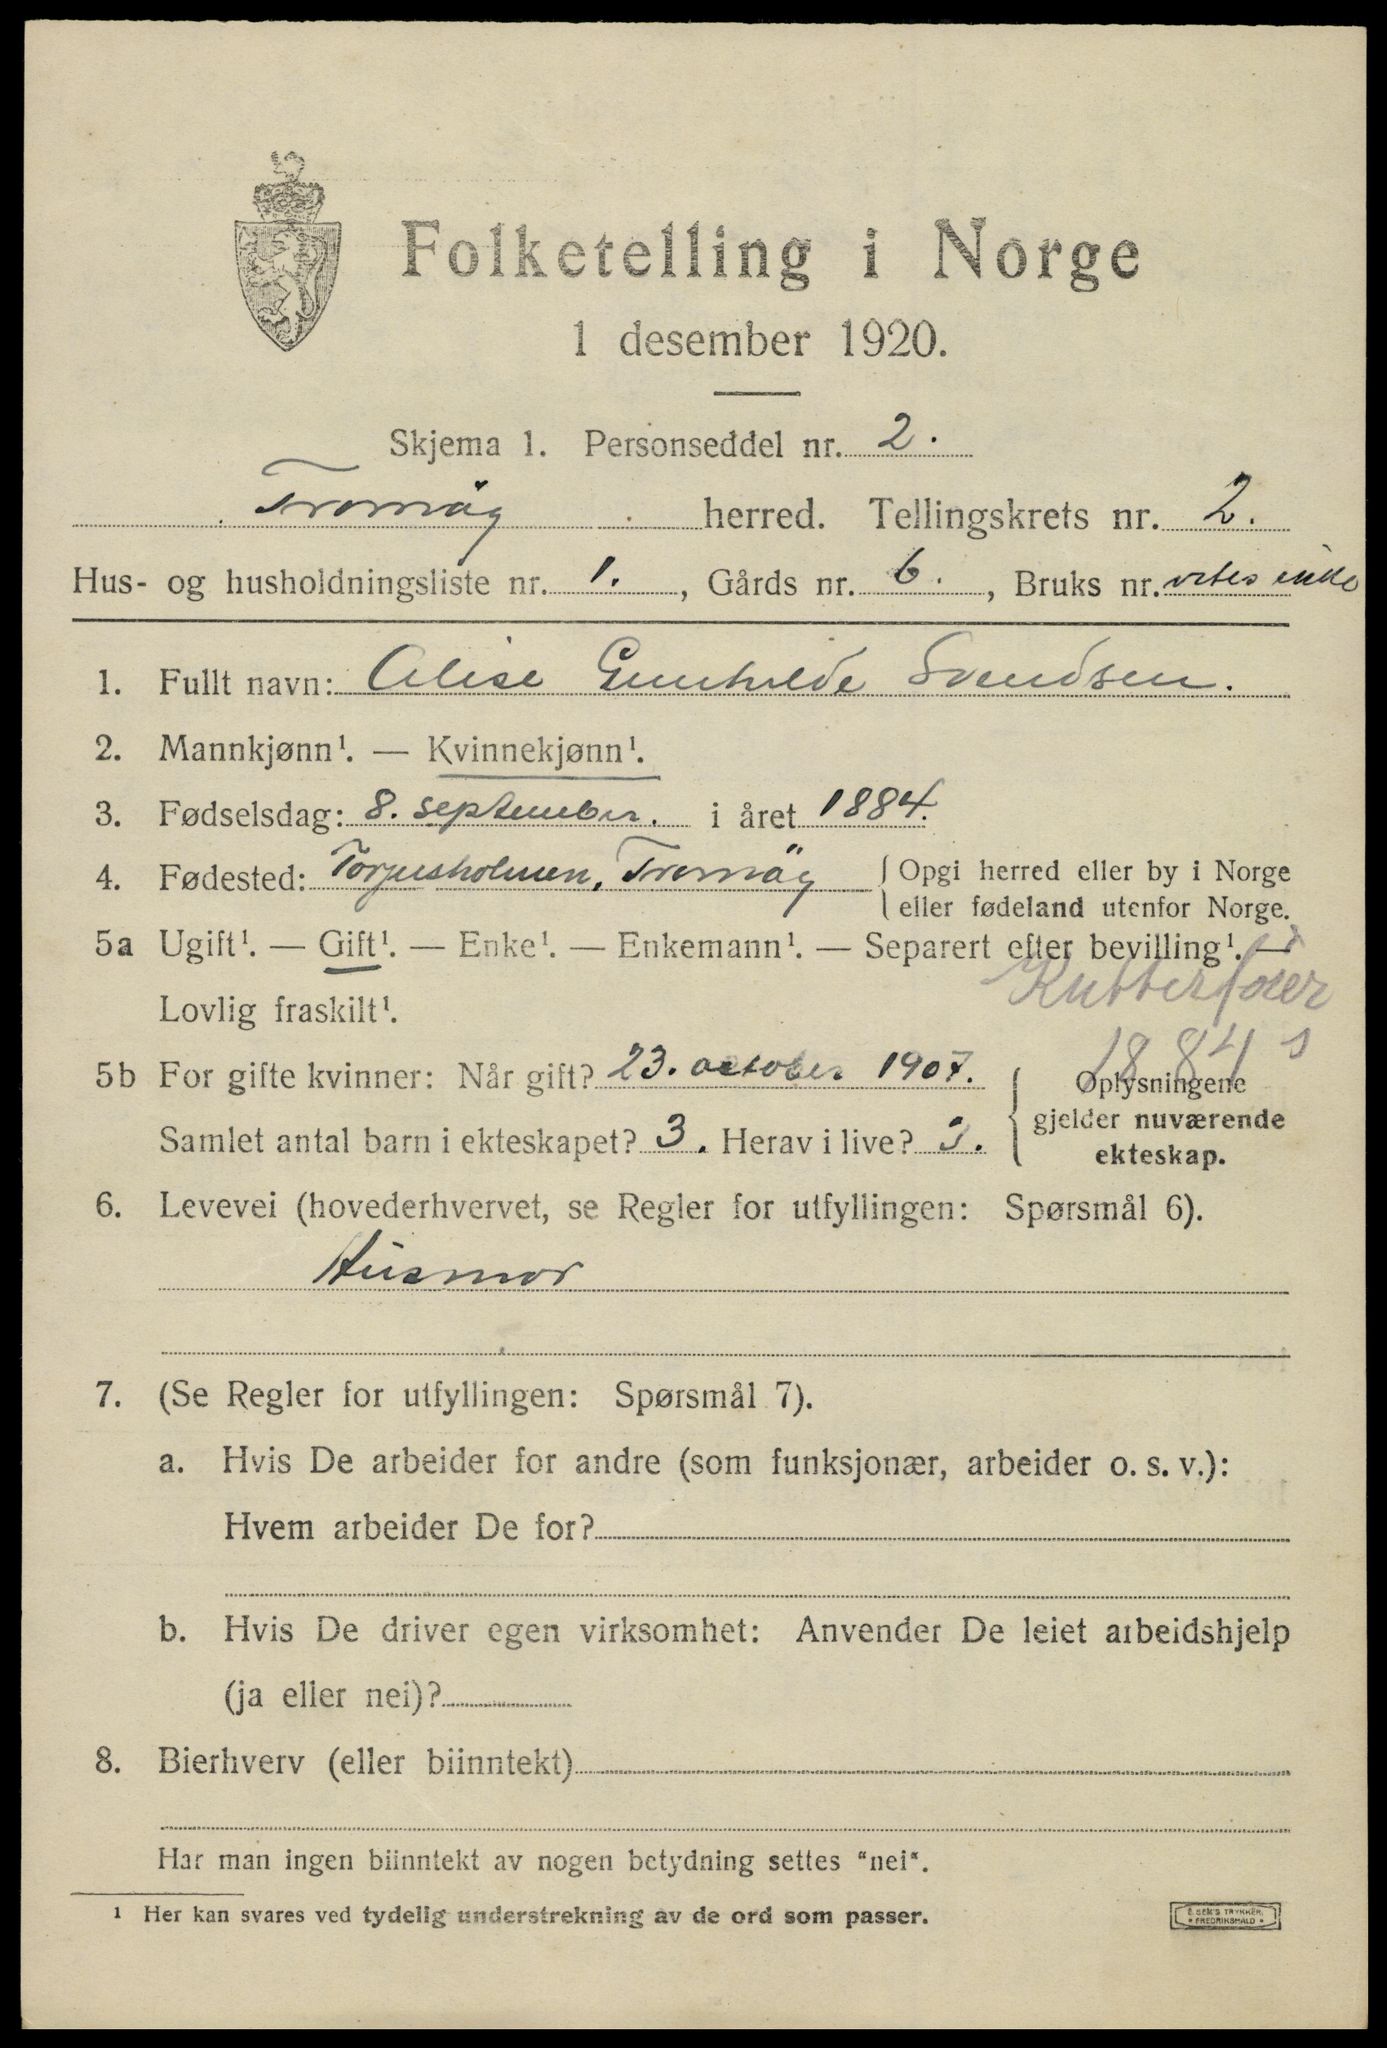 Folketelling i Norge
1 desember 1920.
Skjema 1. Personseddel nr. 2.
Tromöy herred. Tellingskrets nr. 2.
Hus- og husholdningsliste nr. 1., Gårds nr. 6., Bruks nr. vites ikke
1. Fullt navn: Alise Gunhilde Svendsen.
2. Mannkjønn¹. — Kvinnekjønn¹.
3. Fødselsdag: 8. september. i året 1884.
4. Fødested: Torjusholmen, Tromöy { Opgi herred eller by i Norge
eller fødeland utenfor Norge.
5a Ugift¹. — Gift¹. — Enke¹. — Enkemann¹. — Separert efter bevilling¹. —
Lovlig fraskilt¹.
1884
5b For gifte kvinner: Når gift? 23. october 1907.
Samlet antal barn i ekteskapet? 3. Herav i live? 3.
Oplysningene
gjelder nuværende
ekteskap.
6. Levevei (hovederhvervet, se Regler for utfyllingen: Spørsmål 6).
Husmor
7. (Se Regler for utfyllingen: Spørsmål 7).
a. Hvis De arbeider for andre (som funksjonær, arbeider o. s. v.):
Hvem arbeider De for?
b. Hvis De driver egen virksomhet: Anvender De leiet arbeidshjelp
(ja eller nei)?
8. Bierhverv (eller biinntekt)
Har man ingen biinntekt av nogen betydning settes "nei".
¹ Her kan svares ved tydelig understrekning av de ord som passer.
E. SEM'S TRYKKERI
* FREDRIKSHALD *